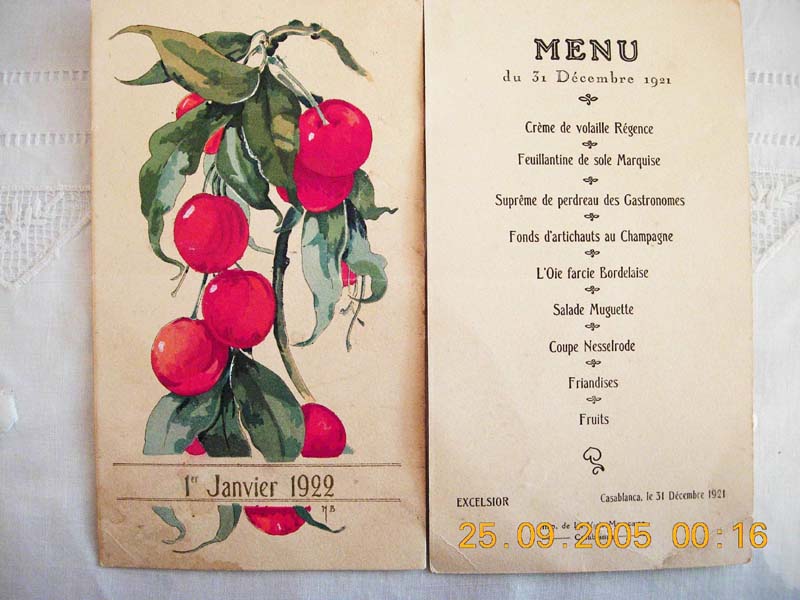 1er Janvier 1922
MB
MENU
du 31 Décembre 1921
Crème de volaille Régence
Feuillantine de sole Marquise
Suprême de perdreau des Gastronomes
Fonds d'artichauts au Champagne
L'Oie farcie Bordelaise
Salade Muguette
Coupe Nesselrode
Friandises
Fruits
EXCELSIOR
Casablanca, le 31 Décembre 1921
Imp. de
25.09.2005 00:16